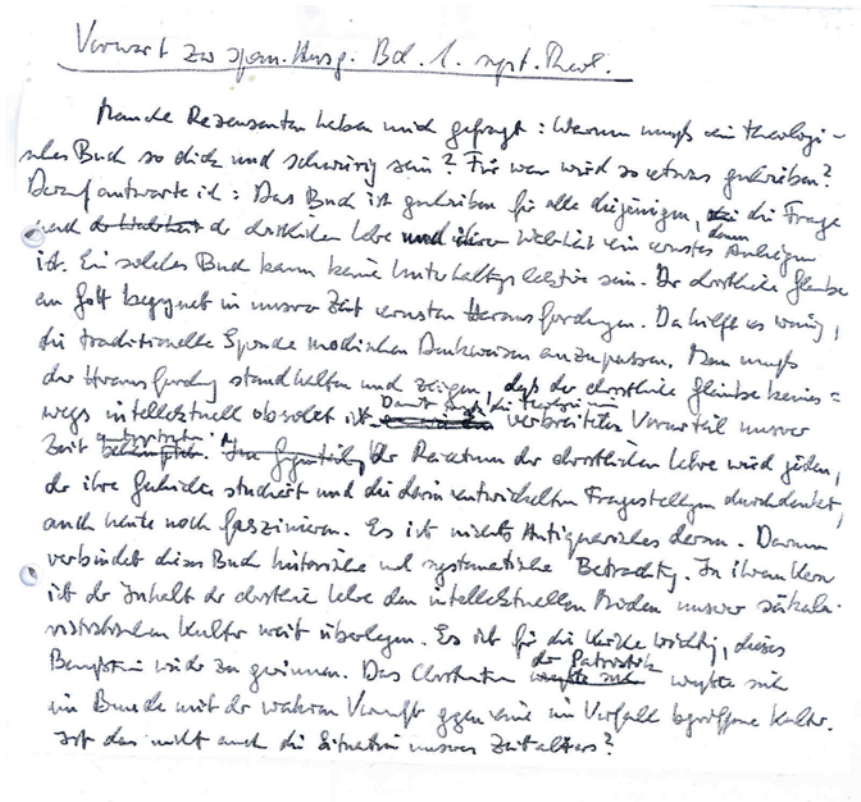 Vorwort zu span. Ausg. Bd. 1. syst. Theol.
Manche Rezensenten haben mich gefragt: Warum muß ein theologi-
sches Buch so dick und schwierig sein? Für wen wird so etwas geschrieben?
Darauf antworte ich: Das Buch ist geschrieben für alle diejenigen, die Frage
nach der Wahrheit der christlichen Lehre und ihrer Wahrheit ein ernstes Anliegen
ist. Ein solches Buch kann keine Unterhaltungslektüre sein. Der christliche Glaube
an Gott begegnet in unserer Zeit ernsten Herausforderungen. Da hilft es wenig,
die traditionelle Sprache modischen Denkweisen anzupassen. Man muß
der Herausforderung standhalten und zeigen, daß der christliche Glaube keines=
wegs intellektuell obsolet ist. Damit muß die Theologie verbreiteten Vorurteil unserer
Zeit entgegentreten. Im Gegenteil, Der Reichtum der christlichen Lehre wird jeden,
der ihre Geschichte studiert und die darin entwickelten Fragestellungen durchdenkt,
auch heute noch faszinieren. Es ist nichts Antiquarisches daran. Darum
verbindet dieses Buch historische und systematische Betrachtung. In ihrem Kern
ist der Inhalt der christliche Lehre den intellektuellen Moden unserer säkula-
ristischen Kultur weit überlegen. Es ist für die Kirche wichtig, dieses
Bewußtsein wieder zu gewinnen. Das Christentum der Patristik wußte sich
im Bunde mit der wahren Vernunft gegen eine im Verfall begriffene Kultur.
Ist das nicht auch die Situation unseres Zeitalters?